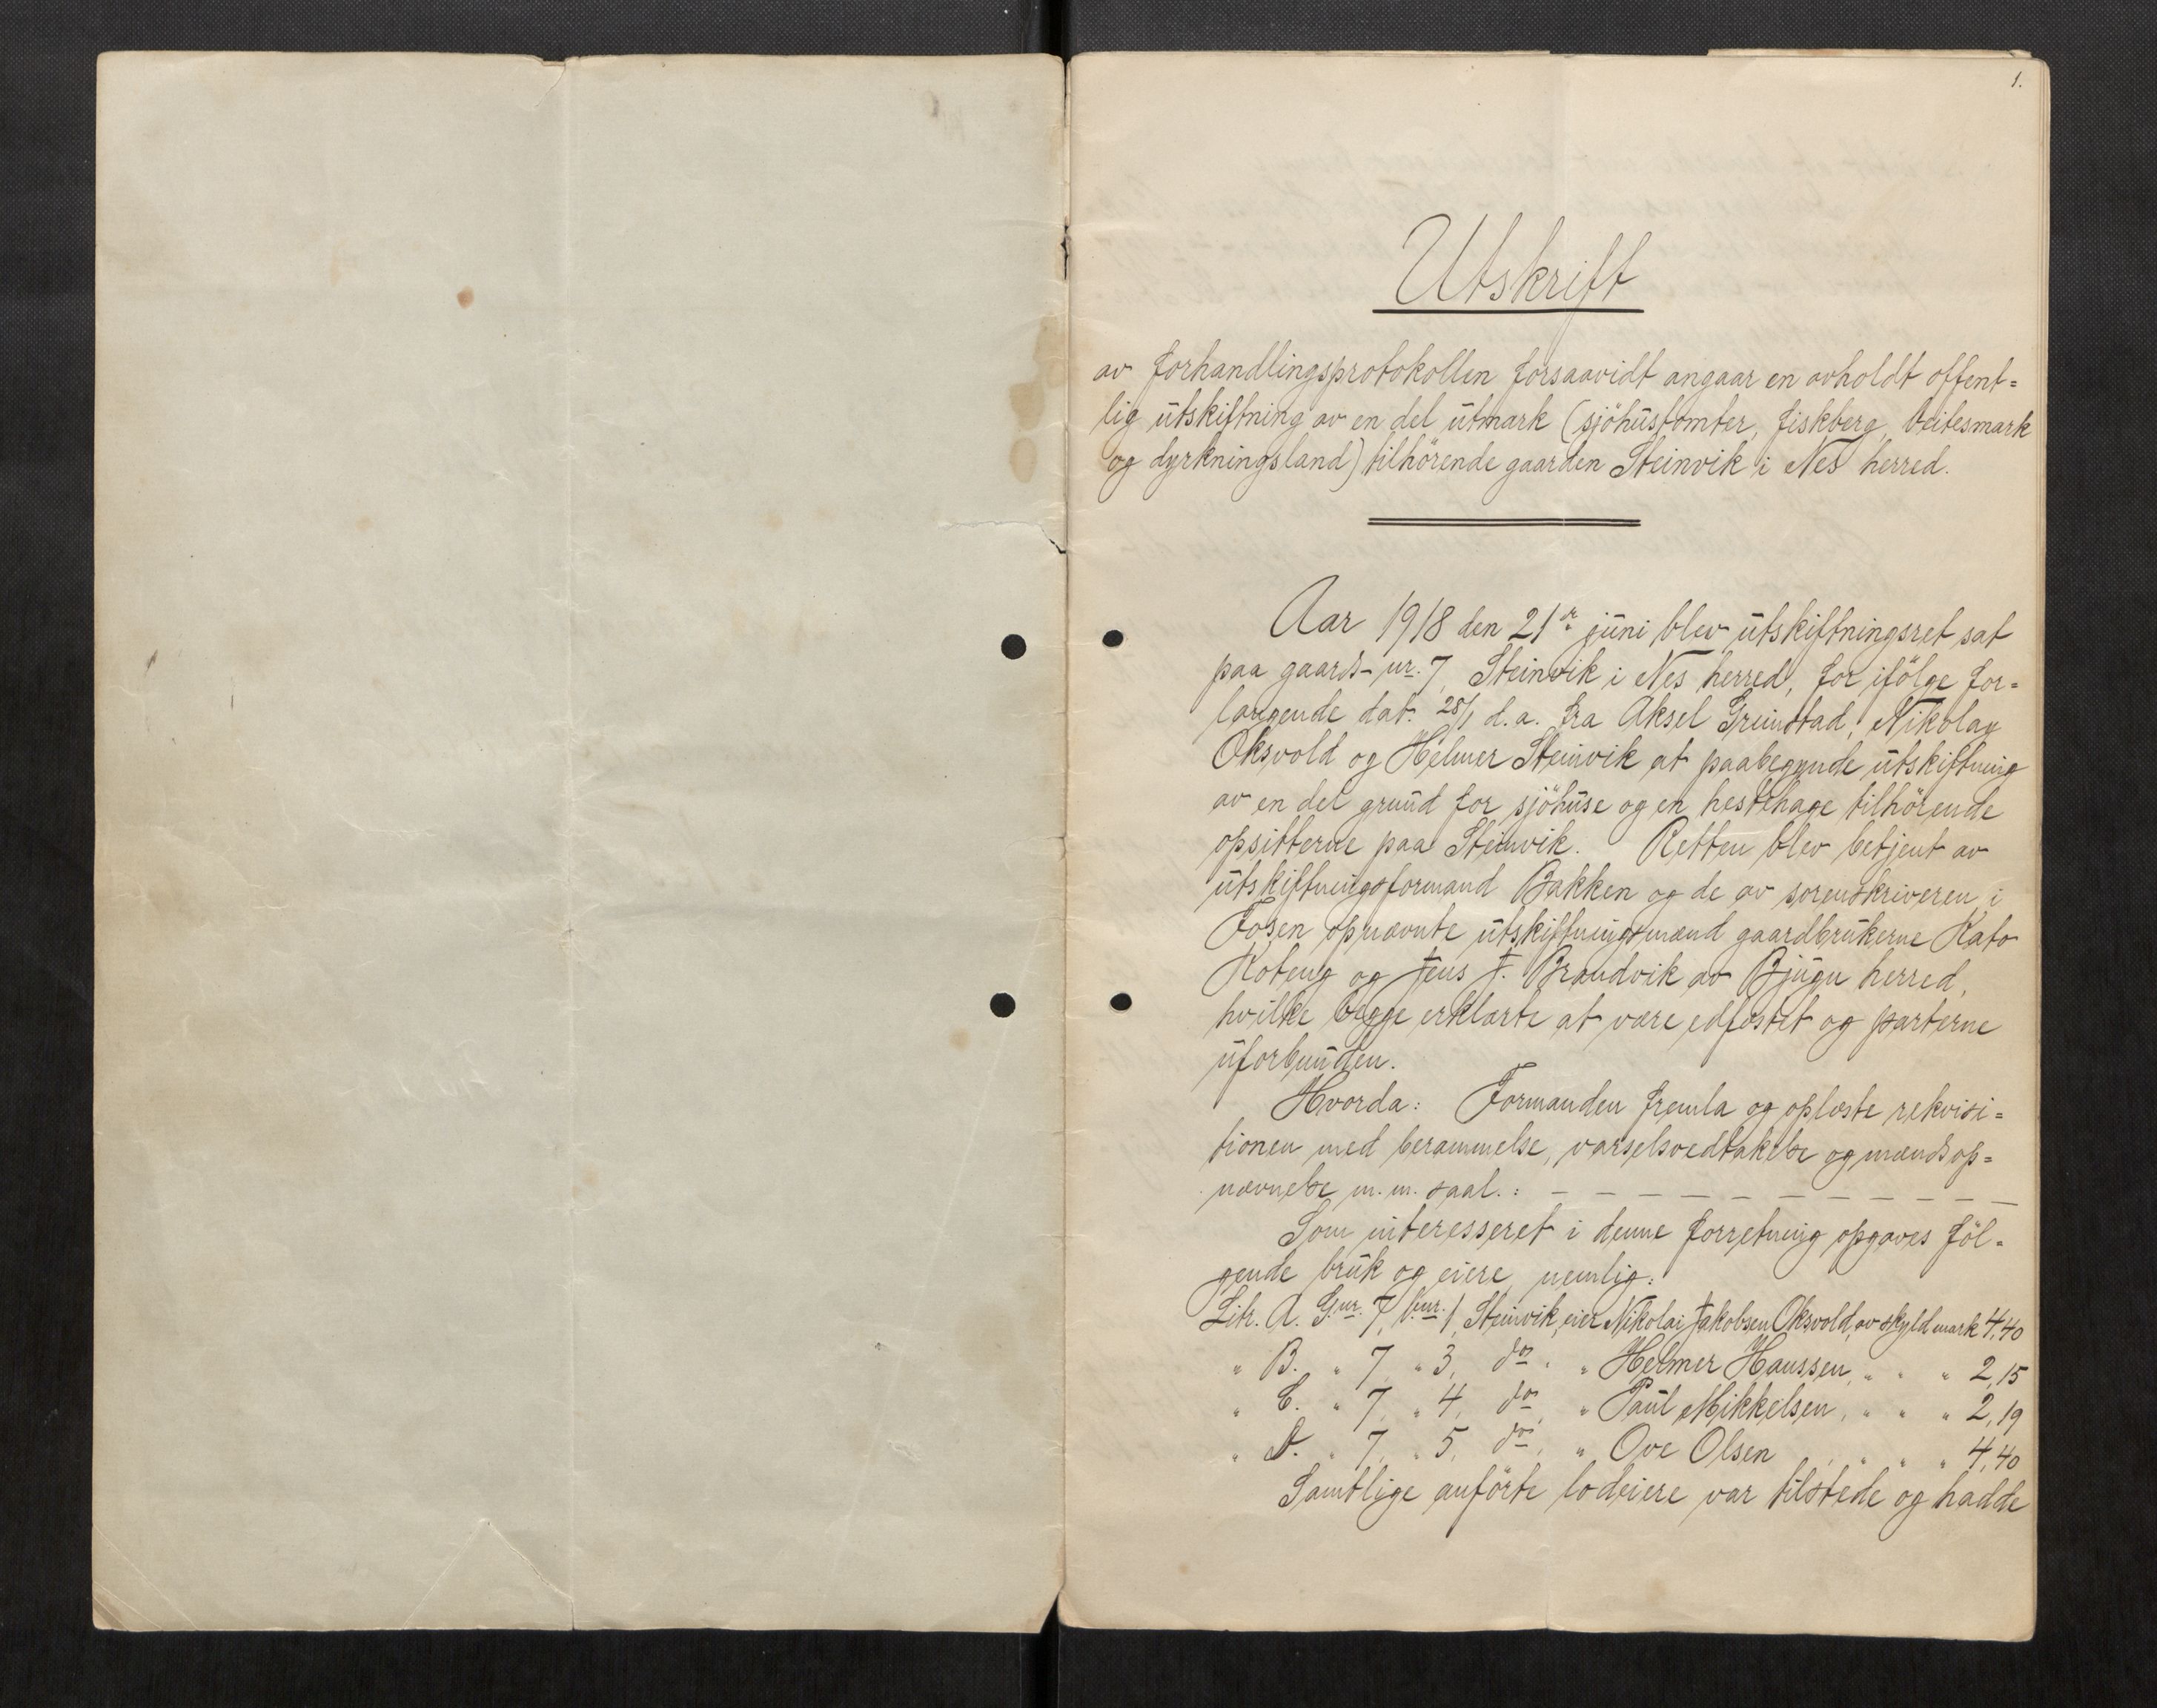 1.
Utskrift
av forhandlingsprotokollen forsaavidt angaar en avholdt offent=
lig utskiftning av en del utmark (sjöhustomter, fiskberg, beitesmark
og dyrkningsland) tilhörende gaarden Steinvik i Nes herred.
Aar 1918 den 21de juni blev utskiftningsret sat
paa gaards-nr. 7, Steinvik i Nes herred, for ifölge for=
langende dat. 28/1 d.a. fra Aksel Grinstad, Nikolay
Oksvold og Helmer Steinvik at paabegynde utskiftning
av en del grund for sjöhuse og en hestehage tilhörende
opsitterne paa Steinvik. Retten blev betjent av
utskiftningsformand Bakken og de av sorenskriveren i
Fosen opnævnte utskiftningsmænd gaardbrukerne Kato
Koteng og Jens J. Brandvik av Bjugn herred,
hvilke begge erklærte at være edfæstet og parterne
uforbunden.
Hvorda: Formanden fremla og oplæste rekvisi=
tionen med berammelse, varselsvedtakelse og mændsop=
nævnelse m.m. saal.: — — — — — — — — — — —
Som interesseret i denne forretning opgaves föl=
gende bruk og eiere, nemlig:
Litr. A. Gnr. 7, bnr. 1, Steinvik, eier Nikolai Jakobsen Oksvold, av skyld mark 4,40
" B. " 7, " 3, do, " Helmer Hanssen, " " " 2,15
" C. " 7, " 4, do, " Paul Mikkelsen, " " " 2,19
" D. " 7, " 5, do, " Ove Olsen " " " 4,40
Samtlige anförte lodeiere var tilstede og hadde